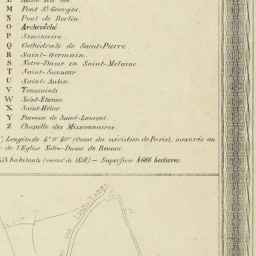 M Pont St Georges.
N Pont de Berlin.
O Archevêché
P Séminaire.
Q Cathédrale de Saint-Pierre.
R Saint-Germain.
S Notre-Dame en Saint-Melaine
T Saint-Sauveur
U Saint-Aubin
V Toussaints
W Saint-Etienne
X Saint-Hélier
Y Paroisse de Saint-Laurent.
Z Chapelle des Missionnaires
Longitude 4° 0' 40" Ouest du méridien de Paris), mesurée au
de l'Eglise Notre-Dame de Rennes
habitants (recens.t de 1856) — Superficie hectares.